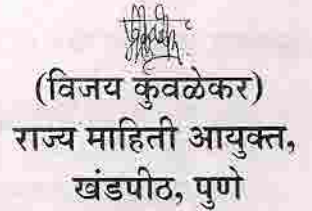 (विजय कुवळेकर)
राज्य माहिती आयुक्त,
खंडपीठ, पुणे